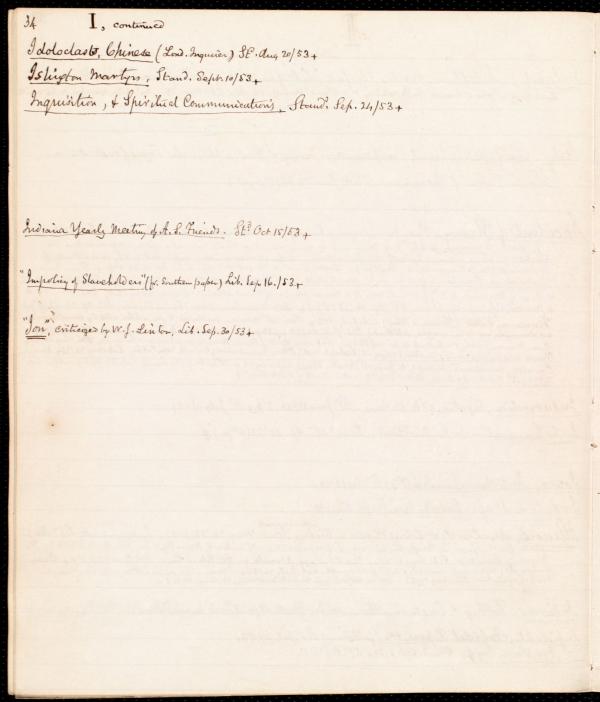 34 I, continued
Idoloclasts, Chinese (Lond. Inquirer) St. Aug 20/53+
Islington Martyrs, Stand. Sept. 10/53+
Inquisition, & Spiritual Communications, Stand. Sep. 24/53+
Indiana Yearly Meeting of A. S. Friends. Std Oct 15/53+
"Impolicy of Slaveholders" (fr. Southern paper) Lib. Sep. 16./53+
"Ion", criticized by W. J. Linton, Lib. Sep. 30/53+